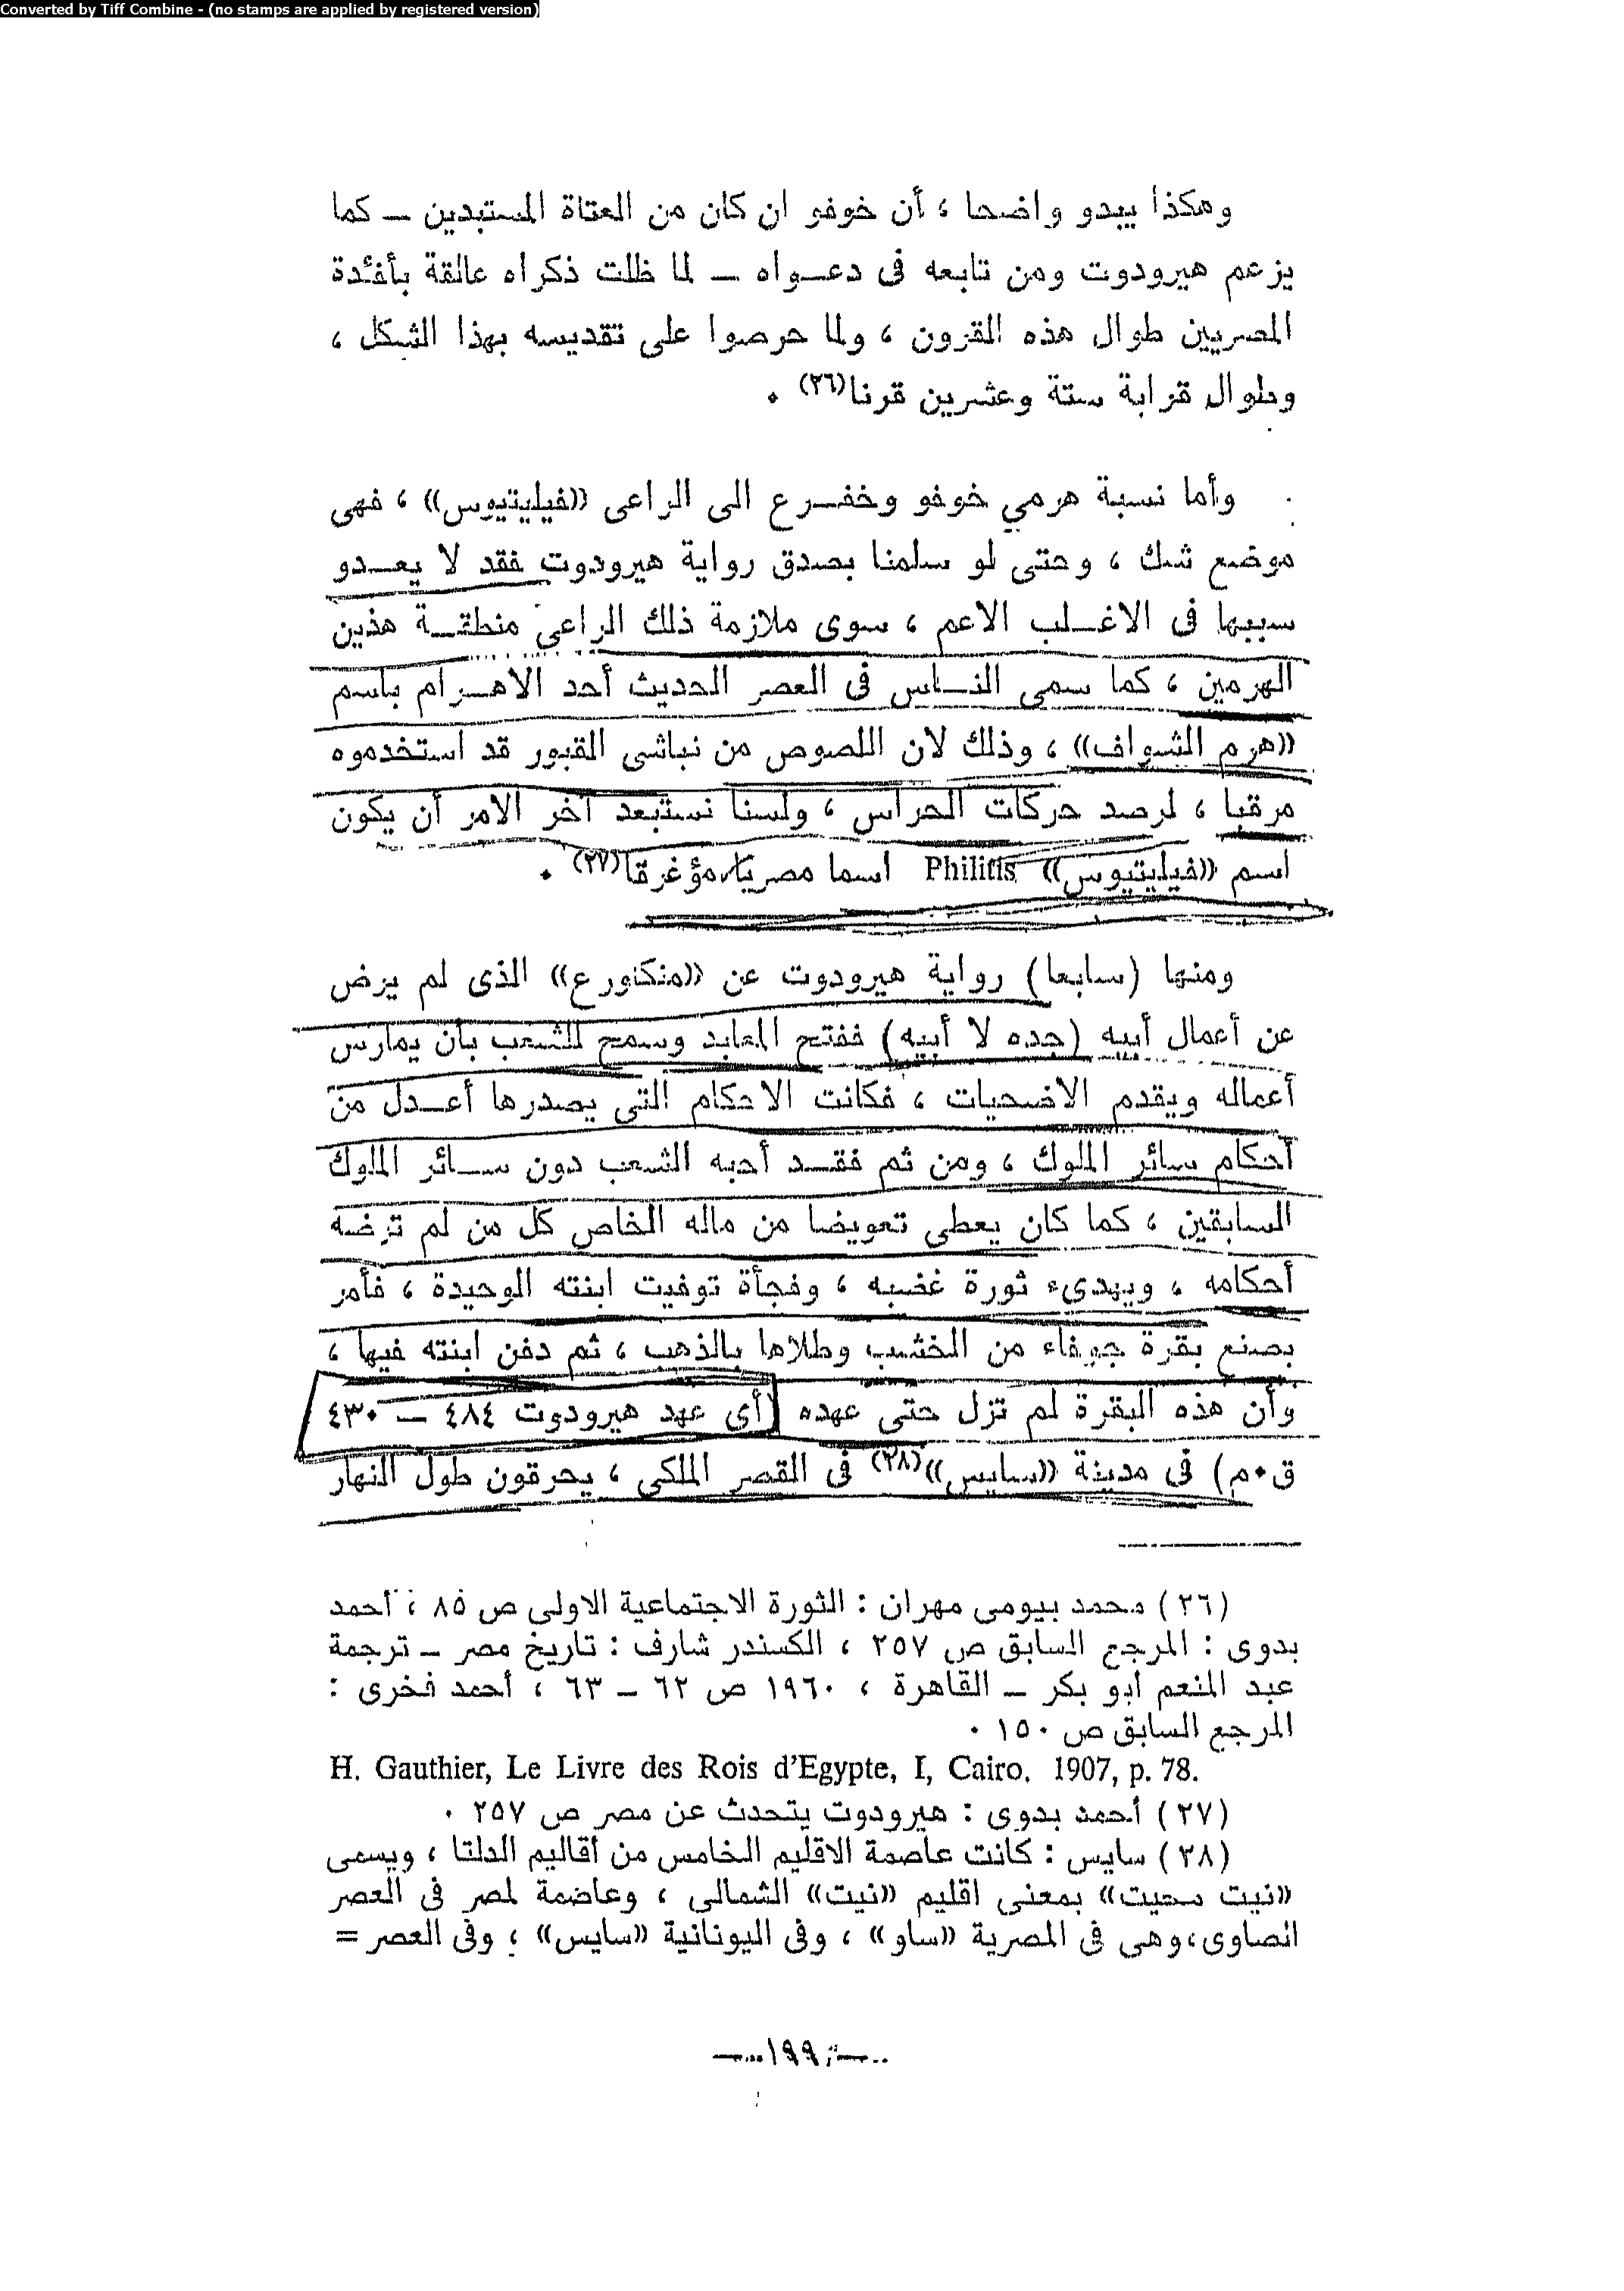 Converted by Tiff Combine - (no stamps are applied by registered version)
وهكذا يبدو واضحا ، أن خوفو ان كان من العتاة المستبدين — كما
يزعم هيرودوت ومن تابعه فى دعـواه — لما ظلت ذكراه عالقة بأفئدة
المصريين طوال هذه القرون ، ولما حرصوا على تقديسه بهذا الشكل ،
وطوال قرابة ستة وعشرين قرنا(٢٦) ٠
وأما نسبة هرمي خوفو وخفـرع الى الراعى «فيليتيوس» ، فهى
موضع شك ، وحتى لو سلمنا بصدق رواية هيرودوت فقد لا يعـدو
سببها فى الاغـلب الاعم ، سوى ملازمة ذلك الراعى منطقـة هذين
الهرمين ، كما سمى النـاس فى العصر الحديث أحد الاهـرام باسم
«هرم الشواف» ، وذلك لان اللصوص من نباشى القبور قد استخدموه
مرقبا ، لرصد حركات الحراس ، ولسنا نستبعد آخر الامر أن يكون
اسم «فيليتيوس» Philitis اسما مصريا مؤغرقا(٢٧) ٠
ومنها (سابعا) رواية هيرودوت عن «منكاورع» الذى لم يرض
عن أعمال أبيه (جده لا أبيه) ففتح المعابد وسمح للشعب بأن يمارس
أعماله ويقدم الاضحيات ، فكانت الاحكام التى يصدرها أعـدل من
أحكام سائر الملوك ، ومن ثم فقـد أحبه الشعب دون سـائر الملوك
السابقين ، كما كان يعطى تعويضا من ماله الخاص كل من لم ترضه
أحكامه ، ويهدىء ثورة غضبه ، وفجأة توفيت ابنته الوحيدة ، فأمر
بصنع بقرة جوفاء من الخشب وطلاها بالذهب ، ثم دفن ابنته فيها ،
وأن هذه البقرة لم تزل حتى عهده (أى عهد هيرودوت ٤٨٤ — ٤٣٠
ق٠م) فى مدينة «سايس»(٢٨) فى القصر الملكى ، يحرقون طول النهار
(٢٦) محمد بيومى مهران : الثورة الاجتماعية الاولى ص ٨٥ ، أحمد
بدوى : المرجع السابق ص ٢٥٧ ، الكسندر شارف : تاريخ مصر — ترجمة
عبد المنعم أبو بكر — القاهرة ، ١٩٦٠ ص ٦٢ — ٦٣ ، أحمد فخرى :
المرجع السابق ص ١٥٠ ٠
H. Gauthier, Le Livre des Rois d'Egypte, I, Cairo, 1907, p. 78.
(٢٧) أحمد بدوى : هيرودوت يتحدث عن مصر ص ٢٥٧ ٠
(٢٨) سايس : كانت عاصمة الاقليم الخامس من أقاليم الدلتا ، ويسمى
«نيت محيت» بمعنى اقليم «نيت» الشمالى ، وعاصمة لمصر فى العصر
الصاوى، وهى فى المصرية «ساو» ، وفى اليونانية «سايس» ، وفى العصر =
— ١٩٩ —